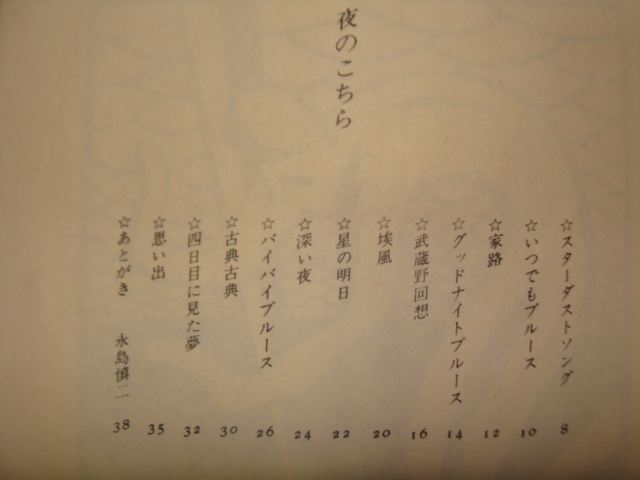 夜のこちら
☆スターダストソング 8
☆いつでもブルース 10
☆家路 12
☆グッドナイトブルース 14
☆武蔵野回想 16
☆埃風 20
☆星の明日 22
☆深い夜 24
☆バイバイブルース 26
☆古典古典 30
☆四日目に見た夢 32
☆思い出 35
☆あとがき 永島慎二 38